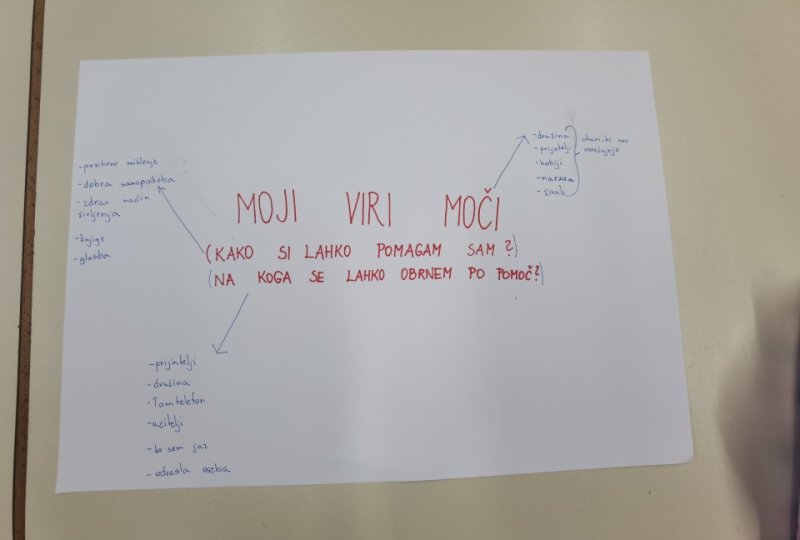 MOJI VIRI MOČI
(KAKO SI LAHKO POMAGAM SAM?)
(NA KOGA SE LAHKO OBRNEM PO POMOČ?)
-pozitivno mišlenje
-dobra samopodoba
-zdrav način
življenja
-knjige
-glasba
-družina
-prijatelji
-hobiji
-narava
-živali
stvari, ki nas
osrečujejo
-prijatelji
-družina
-Tom telefon
-učitelji
-to sem jaz
-odrasla oseba